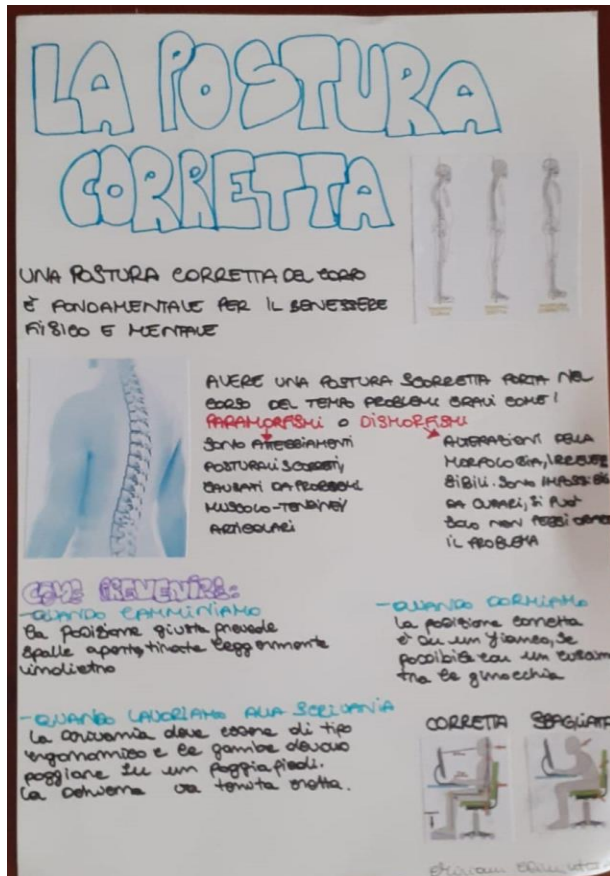 LA POSTURA
CORRETTA
UNA POSTURA CORRETTA DEL CORPO
È FONDAMENTALE PER IL BENESSERE
FISICO E MENTALE
AVERE UNA POSTURA SCORRETTA PORTA NEL
CORSO DEL TEMPO PROBLEMI GRAVI COME:
PARAMORFISMI O DISMORFISMI
SONO ATTEGGIAMENTI
POSTURALI SCORRETTI,
CAUSATI DA PROBLEMI
MUSCOLO-TENDINEI
ARTICOLARI
ALTERAZIONI DELLA
MORFOLOGIA, IRREVER
SIBILI. SONO IMPOSSIBILI
DA CURARE, SI PUÒ
SOLO NON PEGGIORARE
IL PROBLEMA
COME PREVENIRE:
-QUANDO CAMMINIAMO
La posizione giusta prevede
spalle aperte, tirate leggermente
indietro
-QUANDO DORMIAMO
la posizione corretta
è su un fianco, se
possibile con un cuscino
tra le ginocchia
-QUANDO LAVORIAMO ALLA SCRIVANIA
La scrivania deve essere di tipo
ergonomico e le gambe devono
poggiare su un poggiapiedi.
La schiena va tenuta eretta.
CORRETTA SBAGLIATA